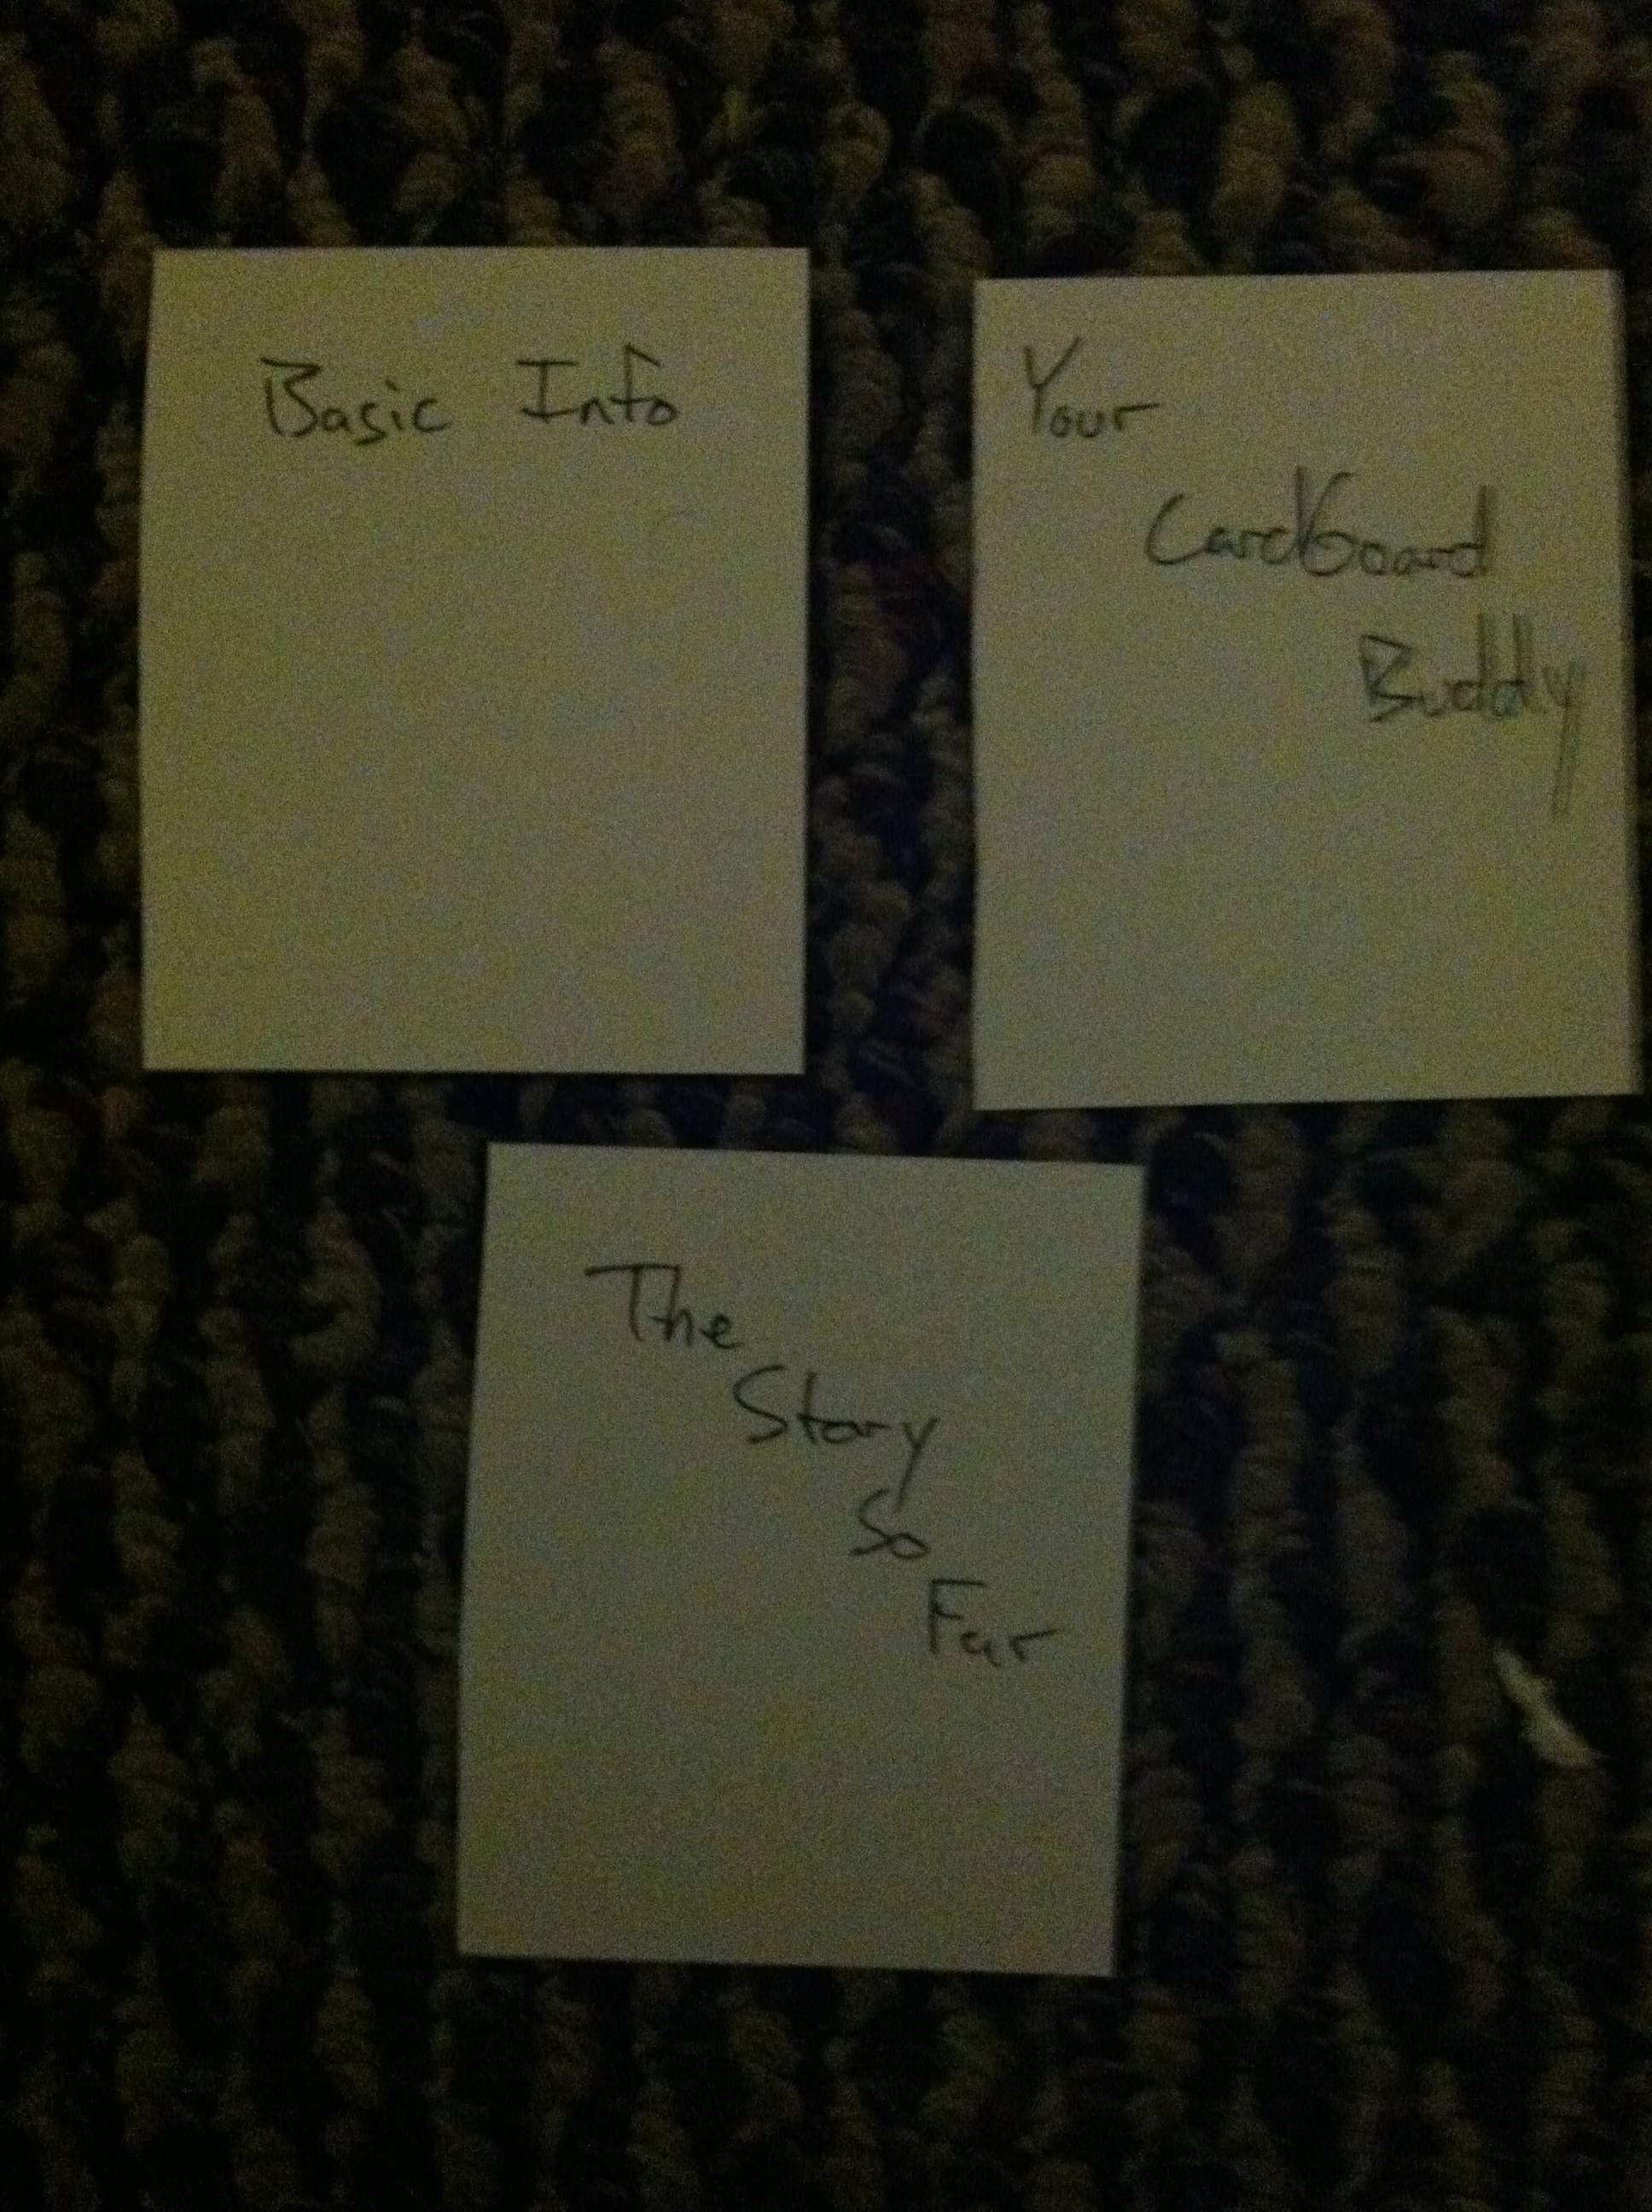 Basic Info
Your
Cardboard
Buddy
The
Story
So
Far